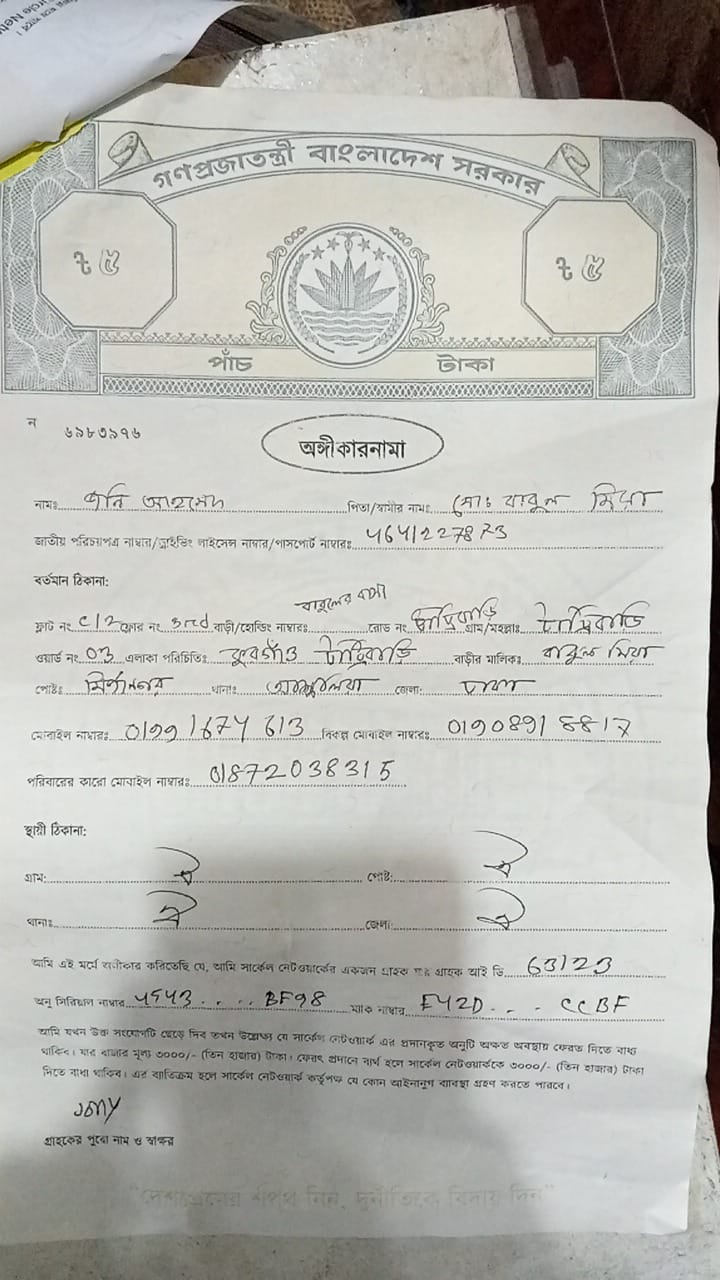 গণপ্রজাতন্ত্রী বাংলাদেশ সরকার
৳ ৫ ৳ ৫
পাঁচ টাকা
ন ৬৯৮৩৯৭৬
অঙ্গীকারনামা
নামঃ আহমেদ পিতা/স্বামীর নামঃ মোঃ বাবুল মিয়া
জাতীয় পরিচয়পত্র নাম্বার/ড্রাইভিং লাইসেন্স নাম্বার/পাসপোর্ট নাম্বারঃ 4641227873
বর্তমান ঠিকানা:
বাবুলের বাসা
ফ্লাট নং C/2 ফ্লোর নং 3rd বাড়ী/হোল্ডিং নাম্বারঃ রোড নং গ্রাম/মহল্লাঃ
ওয়ার্ড নং 03 এলাকা পরিচিতিঃ বাড়ীর মালিকঃ বাবুল মিয়া
পোষ্টঃ থানাঃ জেলা: ঢাকা
মোবাইল নাম্বারঃ 01991674613 বিকল্প মোবাইল নাম্বারঃ 01908918817
পরিবারের কারো মোবাইল নাম্বারঃ 01872038315
স্থায়ী ঠিকানা:
গ্রাম: ঐ পোষ্ট: ঐ
থানাঃ ঐ জেলা: ঐ
আমি এই মর্মে স্বীকার করিতেছি যে, আমি সার্কেল নেটওয়ার্কের একজন গ্রাহক যার গ্রাহক আই ডি 63123
অনু সিরিয়াল নাম্বার 4543.... BF98 ম্যাক নাম্বার E42D... CCBF
আমি যখন উক্ত সংযোগটি ছেড়ে দিব তখন উল্লেক্ষ্য যে সার্কেল নেটওয়ার্ক এর প্রদানকৃত অনুটি অক্ষত অবস্থায় ফেরত দিতে বাধ্য
থাকিব। যার বাজার মূল্য ৩০০০/- (তিন হাজার) টাকা। ফেরৎ প্রদানে ব্যর্থ হলে সার্কেল নেটওয়ার্ককে ৩০০০/- (তিন হাজার) টাকা
দিতে বাধ্য থাকিব। এর ব্যতিক্রম হলে সার্কেল নেটওয়ার্ক কর্তৃপক্ষ যে কোন আইনানুগ ব্যবস্থা গ্রহণ করতে পারবে।
JONY
গ্রাহকের পুরো নাম ও স্বাক্ষর
"দেশপ্রেমের শপথ নিন, দুর্নীতিকে বিদায় দিন"